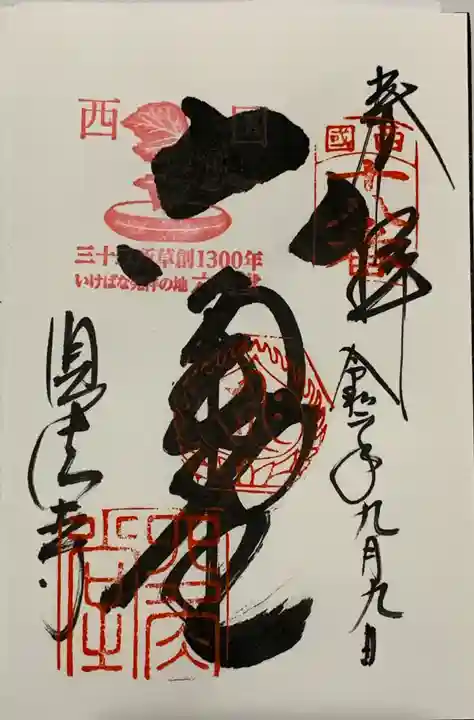 奉拝
令和二年九月九日
西國
十八番
六角堂
西国
三十三所草創1300年
いけばな発祥の地
頂法寺